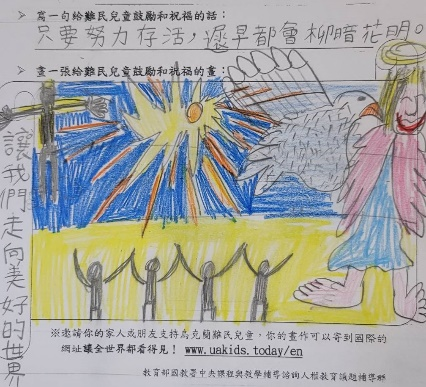 ➢ 寫一句給難民兒童鼓勵和祝福的話：
只要努力存活，遲早都會柳暗花明。
➢ 畫一張給難民兒童鼓勵和祝福的畫：
讓我們走向美好的世界
※邀請你的家人或朋友支持烏克蘭難民兒童，你的畫作可以寄到國際的
網址讓全世界都看得見！ www.uakids.today/en
教育部國教署中央課程與教學輔導諮詢人權教育議題輔導群